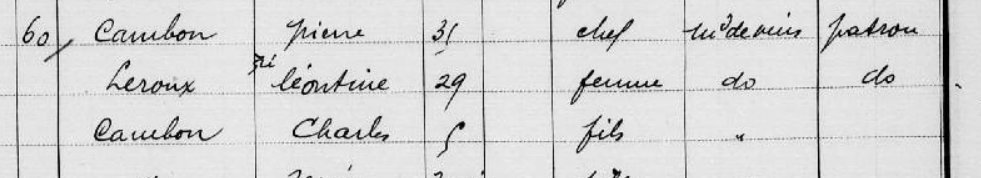 60 Cambon pierre 31 chef md de vins patron
Leroux léontine 29 femme do do
Cambon Charles 5 fils "